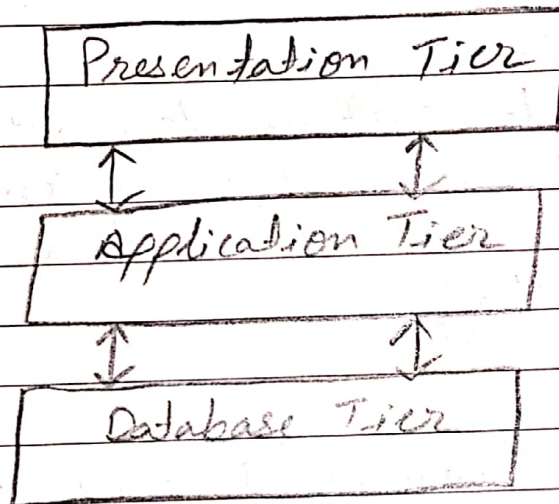 Presentation Tier
Application Tier
Database Tier